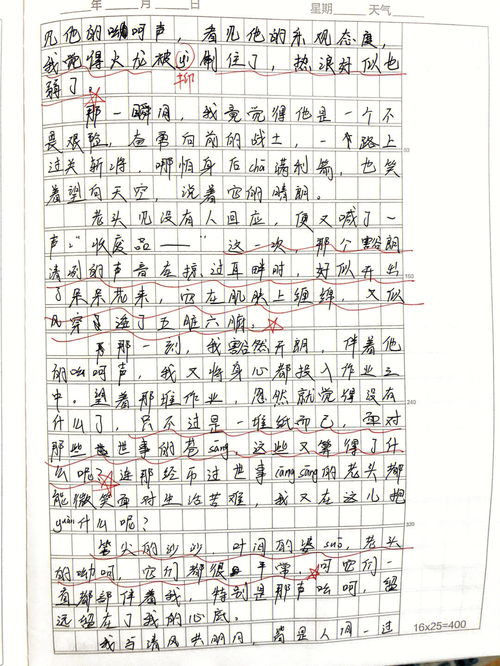 年 月 日 星期 天气
见他的呦呵声，看见他的乐观态度，
我觉得火龙被 制住了，热浪好似也
抑
弱了。
那一瞬间，我竟觉得他是一个不
畏艰险，奋勇向前的战士，一个路上
过关斩将，哪怕身后chā满利箭，也笑
着望向天空，说着它的晴朗。
老头见没有人回应，便又喊了一
声：“收废品——”这一次，那个豁朗
清冽的声音在掠过耳畔时，好似开出
了朵朵花来，它在肌肤上缠绵，又似
风穿过了五脏六腑。
那一刻，我豁然开朗，伴着他
的呦呵声，我又将身心都投入作业之
中。望着那堆作业，忽然就觉得没有
什么了，只不过是一堆纸而已，面对
那些世事的苍sāng，这些又算得了什
么呢？连那经历过世事cāngsāng的老头都
能微笑面对生活苦难，我又在这儿抱
yuàn什么呢？
笔尖的沙沙，叶间的婆suō，老头
的呦呵，它们都很平常，可它们一
直都陪伴着我，特别是那声吆呵，留
远留在了我的心底。
我与清风共明月，皆是人间一过
50
150
240
320
16x25=400